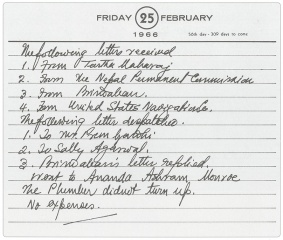 FRIDAY 25 FEBRUARY
1966 56th day - 309 days to come
The following letters received
1. From Tirtha Maharaj
2. From the Nepal Permanent Commission
3. From Brindaban.
4. From United States Navigation Co.
The following letter dispatched
1. To Mr. Prem
2. To Sally Agarwal.
3. Brindaban's letter replied.
Went to Ananda Ashram Monroe
The Plumber didn't turn up.
No expenses.